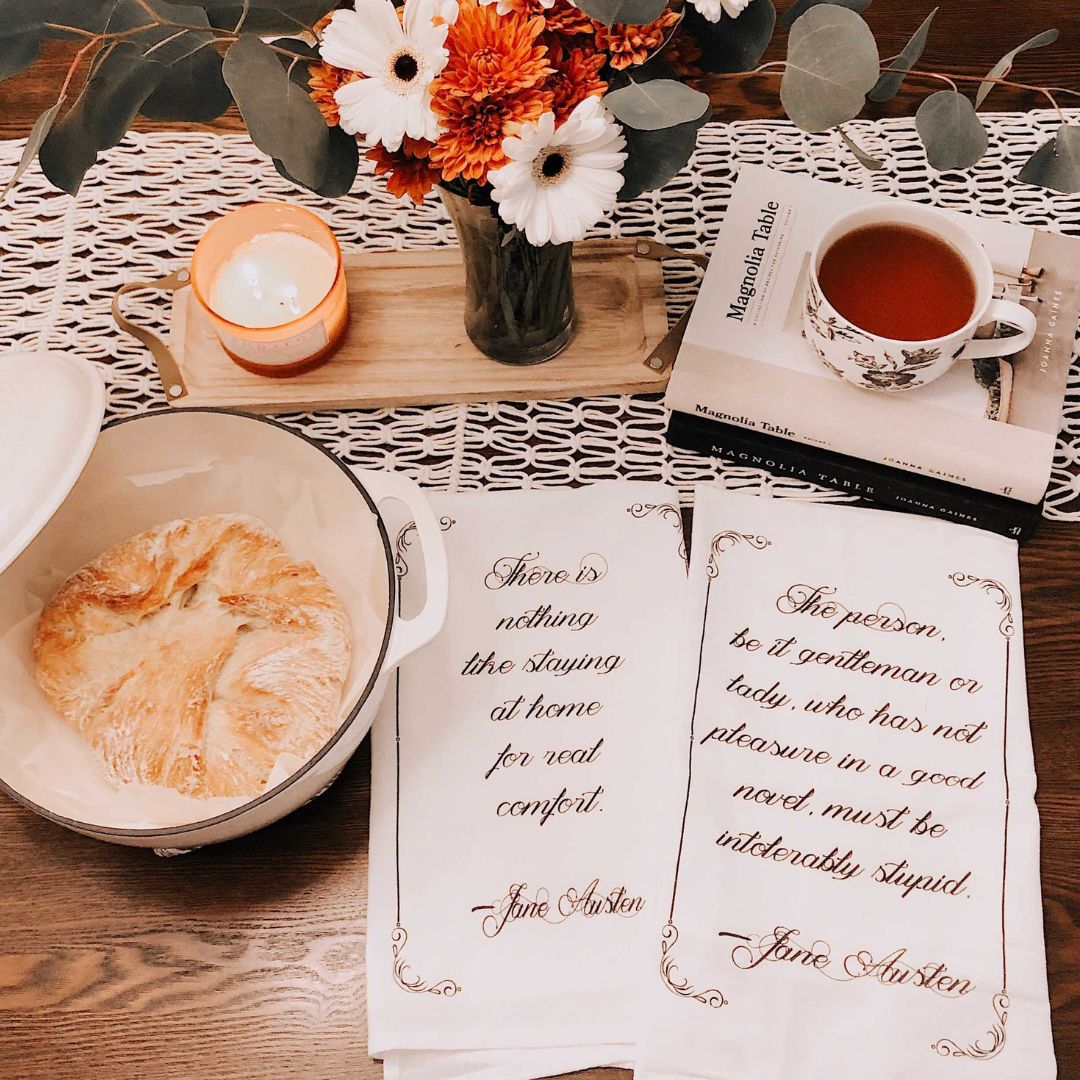 Magnolia Table
JOANNA GAINES
Magnolia Table
JOANNA GAINES
MAGNOLIA TABLE
JOANNA GAINES
There is
nothing
like staying
at home
for real
comfort.
–Jane Austen
The person,
be it gentleman or
lady, who has not
pleasure in a good
novel, must be
intolerably stupid.
–Jane Austen